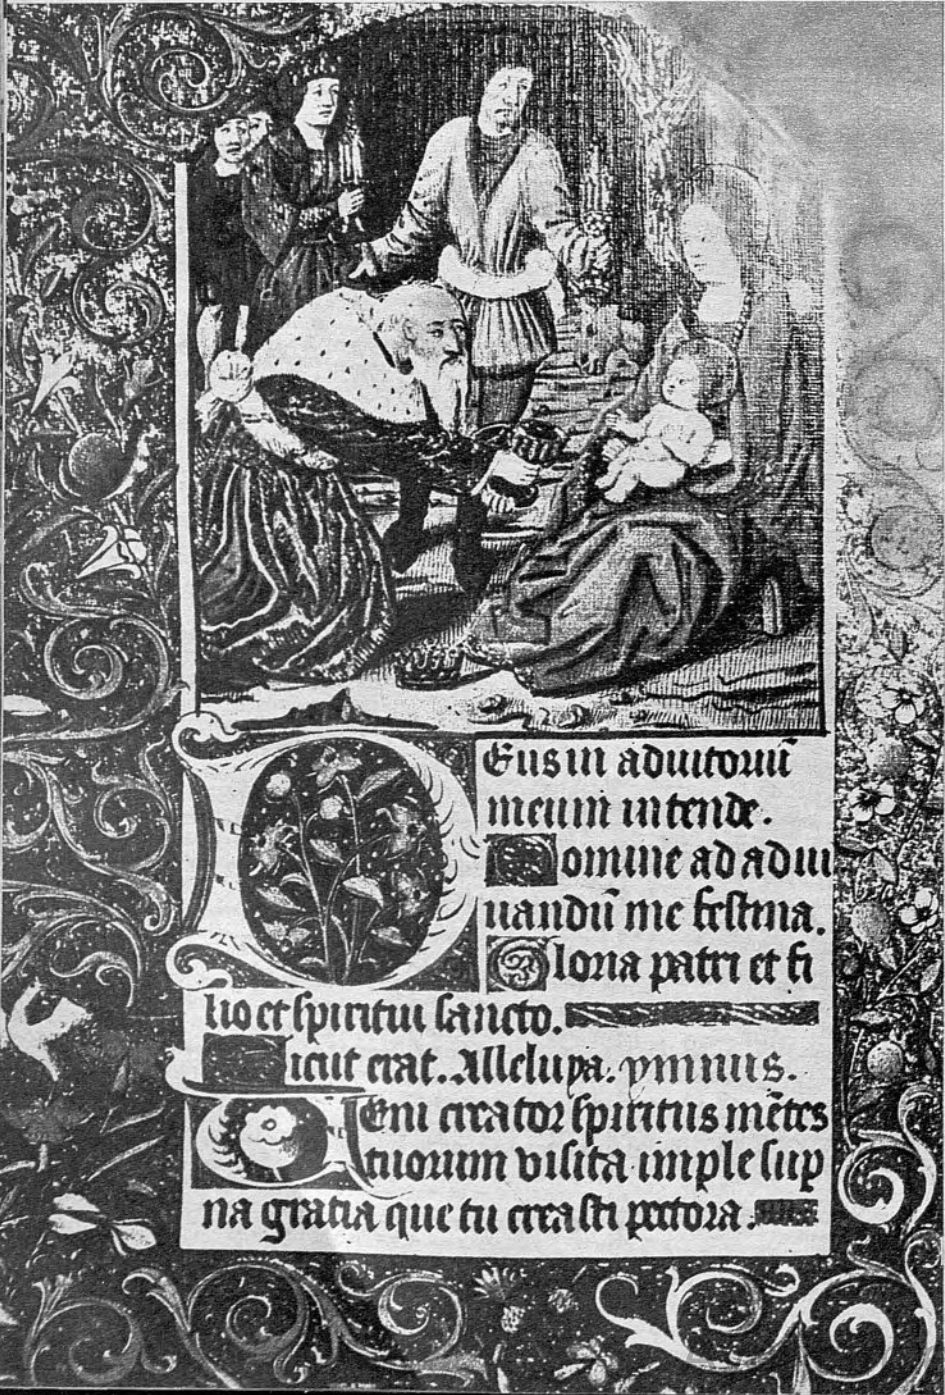 Deus in adiutoriū
meum intende.
Domine ad adiu
uandū me festina.
Gloria patri et fi
lio et spiritui sancto.
Sicut erat. Alleluya. ymnus.
Veni creator spiritus mētes
tuorum visita imple sup
na gratia que tu creasti pectora.